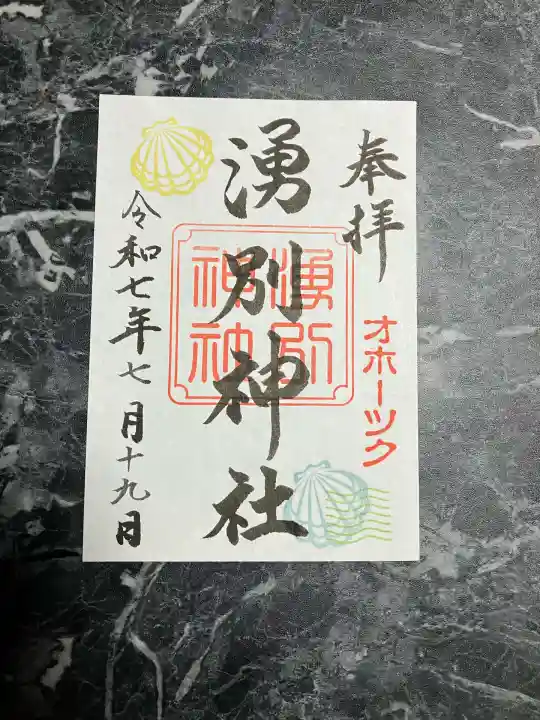 奉拝
オホーツク
湧別神社
湧別
神社
令和七年七月十九日